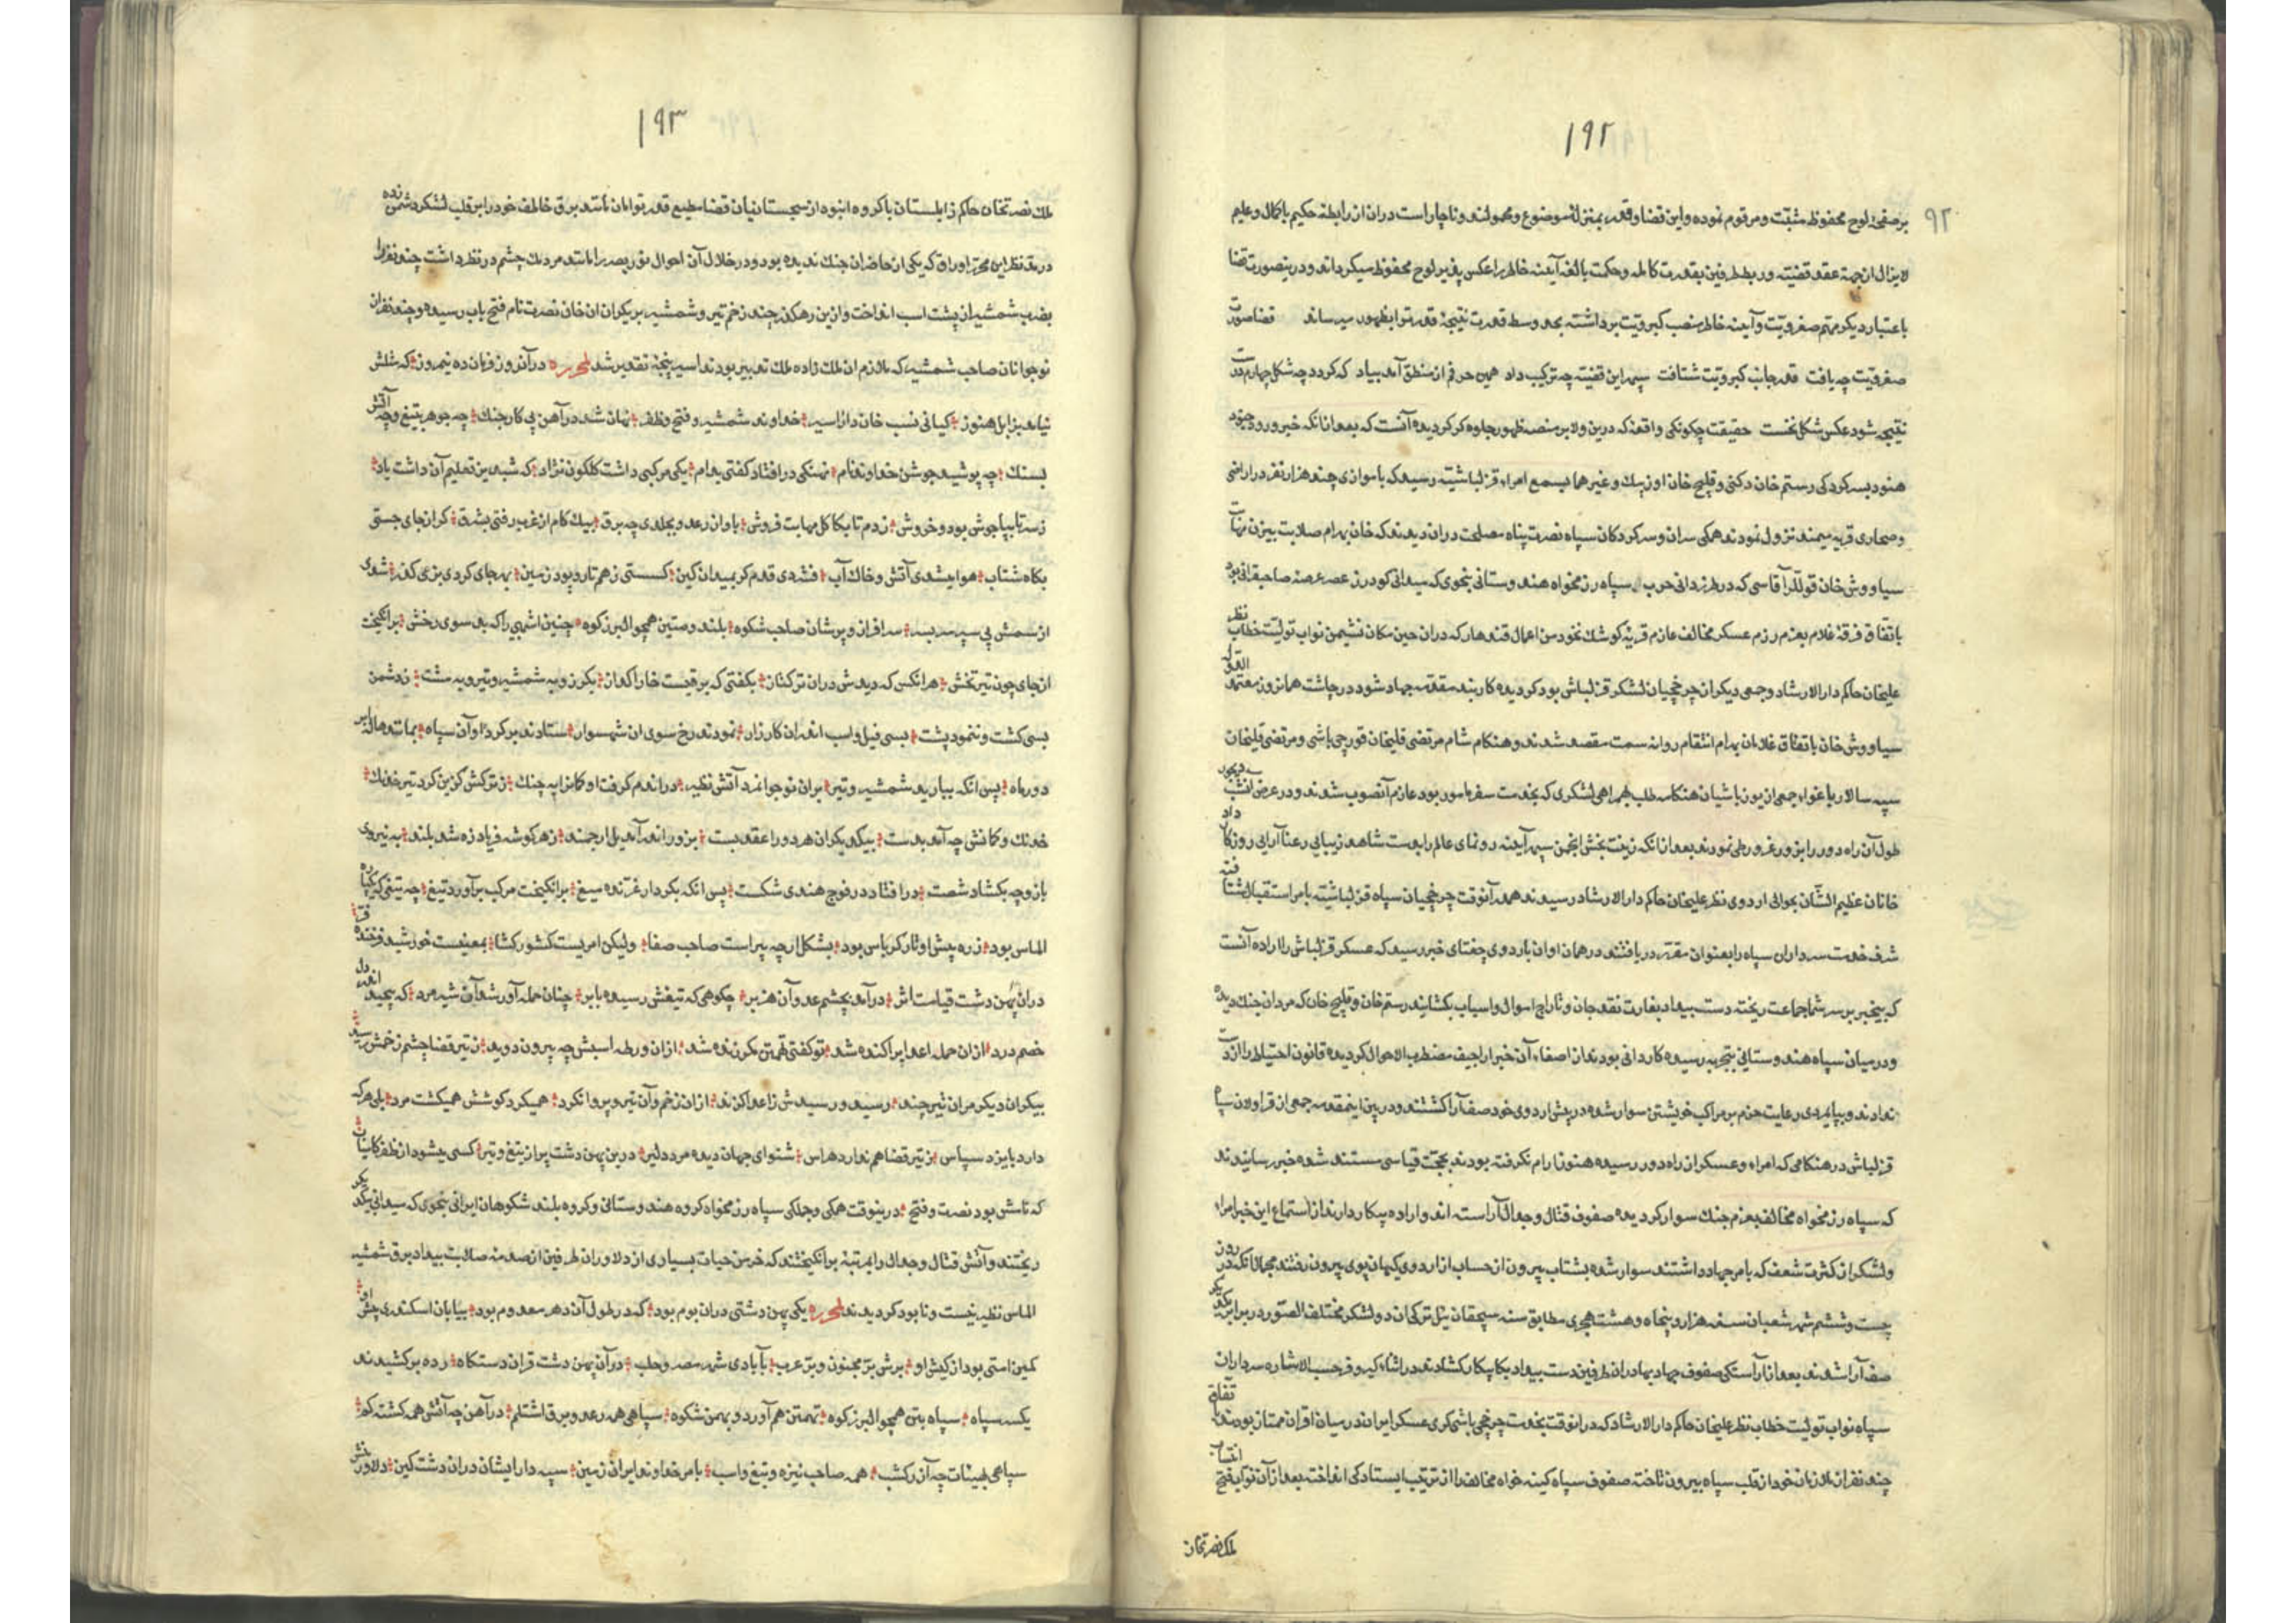 ۱۹۲
۹۲
بر صفحهٔ لوح محفوظ مثبت و مرقوم نموده و این قضا و قدر بمنزلهٔ موضوع و محمولند و ناچار است دران از رابطهٔ حکیم باکمال و علیم
لایزال از جهة عقد قضیته و ربط طرفین بقدرت کامله و حکمت بالغه آینهٔ خاطر را عکس پذیر لوح محفوظ میکرداند و درینصورت قضا
باعتبار دیکر مهتم صغرویت و آینه خاطر منصب کبرویت برداشته بحد وسط قدرت نتیجهٔ قدر ترا بظهور میرساند قضا صورت
صغرویت چه یافت قدر جانب کبرویت شتافت سپهر این قضیت چه ترکیب داد همین حرفم از منطق آمد بیاد که کردد چه شکل چهارم درست
نتیجه شود عکس شکل نخست حقیقت چکونکی واقعهٔ که درین ولا بر منصهٔ ظهور جلوه کر کردیده آنست که بعد از انکه خبر ورود جنود
هنود بسر کردکی رستم خان دکنی و قلیج خان اوزبک و غیرهما بسمع امراء قزلباشیته رسید که با موازی چند هزار نفر در اراضی
و صحاری قریه میمند نزول نمودند همکی سران و سرکردکان سپاه نصرت پناه مصلحت دران دیدند که خان بهرام صلابت بیژن مهابت
سیاووش خان قوللر آقاسی که در طرز دانی حرب سپاه رزمخواه هندوستانی بنحوی که میدانی کو در رز عصر عرصه صاحبقرانی بود
باتفاق فرقهٔ غلام بعزم رزم عسکر مخالف عازم قریهٔ کوشک نخود من اعمال قندهار که دران حین مکان نشیمن نواب تولیت خطاب نظر
علیخان حاکم دار الارشاد و جمعی دیکر از چرخچیان لشکر قزلباش بود کردیده کاربند مقدمه جهاد شود در چاشت همانروز معتمد
سیاووش خان باتفاق غلامان بهرام انتقام روانه سمت مقصد شدند و هنکام شام مرتضی قلیخان قورچی باشی و مرتضی قلیخان
سپه سالار با غواء جمعی از یوزباشیان هنکامه طلب بهمراهی لشکری که بخدمت سفر مامور بود عازم آنصوب شدند و در عرض انشب
طول آن راه دور را بزور غرور طی نمودند بعد از انکه زینت بخش انجمن سپهر آینه رونمای عالم را بدست شاهد زیبایی رعنا آرایی روزکار داد
خانان عظیم الشان بحوالی اردوی نظر علیخان حاکم دار الارشاد رسیدند همه آنوقت چرخچیان سپاه قزلباشیته بامر استقبال شتافته
شرف خدمت سرداران سپاه را بعنوان مقرر دریافتند در همان اوان باردوی جغتای خبر رسید که عسکر قزلباش را اراده آنست
که بیخبر بر سر شما جماعت ریخته دست بیداد بغارت نقد جان و تاراج اموال و اسباب بکشایند رستم خان و قلیج خان که مردان جنک دیده
و در میان سپاه هندوستانی بتجربه رسیده کاردانی بودند از اصغاء آن خبر اراجیف مضطرب الاحوال کردیده قانون احتیاط را از دست
ندادند و بپایمردی رعایت حزم بر مراکب خویشتن سوار شده در پیش اردوی خود صف آرا کشتند و درین اینمقدمه جمعی از قراولان سپاه
قزلباش در هنکامی که امراء و عسکر از راه دور رسیده هنوز آرام نکرفته بودند بحجت قیاسی مستند شده خبر رسانیدند
که سپاه رزمخواه مخالف بعزم جنک سوار کردیده صفوف قتال و جدال آراسته اند و اراده پیکار دارند از استماع این خبر امراء
و لشکر از کثرت شعف که بامر جهاد داشتند سوار شده بشتاب بیرون از حساب از اردوی کیهان پوی بیرون رفتند مجملا انکه در روز
بیست و ششم شهر شعبان سنه هزار و پنجاه و هشت هجری مطابق سنه سیچقان ئیل ترکی ان دو لشکر مختلف الصور در برابر یکدیکر
صف آرا شدند بعد از آراستکی صفوف جهاد بهادران طرفین دست بیداد بکا پیکار کشادند در اثناء کیر و فر حسب الاشاره سرداران
سپاه نواب تولیت خطاب نظر علیخان حاکم دار الارشاد که در انوقت بخدمت چرخچی باشیکری عسکر ایران در میان اقران ممتاز بود باتفاق
چند نفر از ملازمان خود از قلب سپاه بیرون تاخته صفوف سپاه کینه خواه مخالف را از ترتیب ایستادکی انداخته بعد از آن نواب فتح انتساب
ملک نصرتخان
۱۹۳
ملک نصرتخان حاکم زابلستان با کروه انبوه از سجستانیان قضا مطیع قدر توامان مانند برق خاطف خود را بر قلب لشکر دشمن زده
در مد نظر این محرر اوراق که یکی از حاضران جنک ندیده بود و در خلال آن احوال نور بصر را مانند مردمک چشم در نظر داشت چند نفر را
بضرب شمشیر از پشت اسب انداخت و ازین رهکذر چند زخم تیر و شمشیر بر پیکر ان خان نصرت نام فتح یاب رسیده و چند نفر از
نوجوانان صاحب شمشیر که ملازم ان ملک زاده ملک تدبیر بودند اسیر پنجهٔ تقدیر شد لمحرره در آنروز فرمان ده نیمروز که مثلش
نیامد بزابل هنوز کیانی نسب خان دارا سریر خداوند شمشیر و فتح و ظفر نهان شد در آهن پی کار جنک چه جوهر بتیغ و چه آتش
بسنک چه پوشید جوشن خداوند نام نهنکی در افتاد کفتی بدام یکی مرکبی داشت کلکون نژاد که شبدیز تعلیم آن داشت یاد
ز سر تا بپا جوش بود و خروش ز دم تا بکاکل مهابت فروش باواز رعد و بجلدی چه برق بیک کام از غرب رفتی بشرق کر از جای جستی
بکاه شتاب هوا میشدی آتش و خاک آب فشردی قدم کر بمیدان کین کسستی ز هم تار و پود زمین بهر جای کردی بزی کذر شدی
از سمش پی سپر سر بسر سرافراز و پر شان صاحب شکوه بلند و متین همچو البرز کوه چنین اشهبی را که بد سوی رخش بر انکیخت
از جای چون تیر تخش هر انکس که دیدش دران ترکتاز بکفتی که برقیست خارا کداز بکرز و به شمشیر و تیر و به مشت ز دشمن
بسی کشت و ننمود پشت بسی فیل و اسب اندران کارزار نمودند رخ سوی ان شهسوار ستادند بر کرد او آن سپاه بمانند هاله بر
دور ماه پس انکه ببارید شمشیر و تیر بران نوجوانمرد آتش نظیر در اندم کرفت او کمان را به چنک ز ترکش کزین کرد تیر خدنک
خدنک و کمانش چه آمد بدست بیکدیکران هر دو را عقد بست بزور اندر آمد یل ارجمند ز هر کوشه فریاد زه شد بلند به نیروی
بازو چه بکشاد شصت در افتاد در فوج هندی شکست پس انکه بکردار غرنده میغ بر انکیخت مرکب برآورد تیغ چه تیغی که پاره
الماس بود زره پیش او تار کرباس بود بشکل ارچه پیر است صاحب صفا ولیکن امریست کشور کشا بمعنیست خورشید فرخنده فر
دران پهن دشت قیامت اثر درآمد بچشم عدو آن هزبر چکوهی که تیغش رسیده بابر چنان حمله آور شد آن شیر مرد که پیچید اندر دل
خصم درد از ان حمله اعدا پراکنده شد تو کفتی تهمتن مکر زنده شد ازان ورطه اسبش چه بیرون دوید ز تیر قضا چشم زخمش رسید
بیکران دیکر مران تیر چند رسید و رسیدش ز اعدا کزند ازان زخم و آن تیر و پروا نکرد همیکرد کوشش همیکشت مرد بلی هر که
دارد بایزد سپاس ز تیر قضا هم ندارد هراس شنو ای جهان دیده مرد دلیر درین پهن دشت پر از تیغ و تیر کسی میشود از ظفر کامیاب
که تاسش بود نصرت و فتح درینوقت همکی و جملکی سپاه رزمخواه کروه هندوستانی و کروه بلند شکوهان ایرانی بنحوی که میدانی یکدیکر
ریختند و آتش قتال و جدال را بمرتبهٔ برانکیختند که خرمن حیات بسیاری از دلاوران طرفین از صدمهٔ صلابت بیداد برق شمشیر
الماس نظیر نیست و نابود کردیدند لمحرره یکی پهن دشتی دران بوم بود که در طول آن دهر معدوم بود بیابان اسکندری پیش او
کمین استی بود از کیش او برش بر مجنون و بر عرب بآبادی شهر مصر و حلب دران پهن دشت قران دستکاه رده بر کشیدند
یکسر سپاه سپاه بتن همچو البرز کوه تهمتن هم آورد و بهمن شکوه سپاهی همه رعد و برق اشتلم در آهن چه آتش همه کشته کم
سپاهی بهیئات چه آذر کشب همه صاحب نیزه و تیغ و اسب بامر خداوند ایران زمین سپهدار ایشان دران دشت کین دلاور